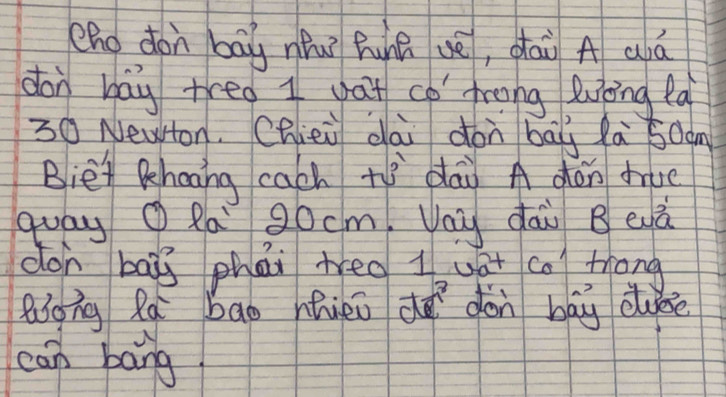 Cho đòn bẩy như hình vẽ, đầu A của
đòn bẩy treo 1 vật có trọng lượng là
30 Newton. Chiều dài đòn bẩy là 50cm
Biết khoảng cách từ đầu A đến trục
quay O là 20cm. Vậy đầu B của
đòn bẩy phải treo 1 vật có trọng
lượng là bao nhiêu để đòn bẩy được
cân bằng.